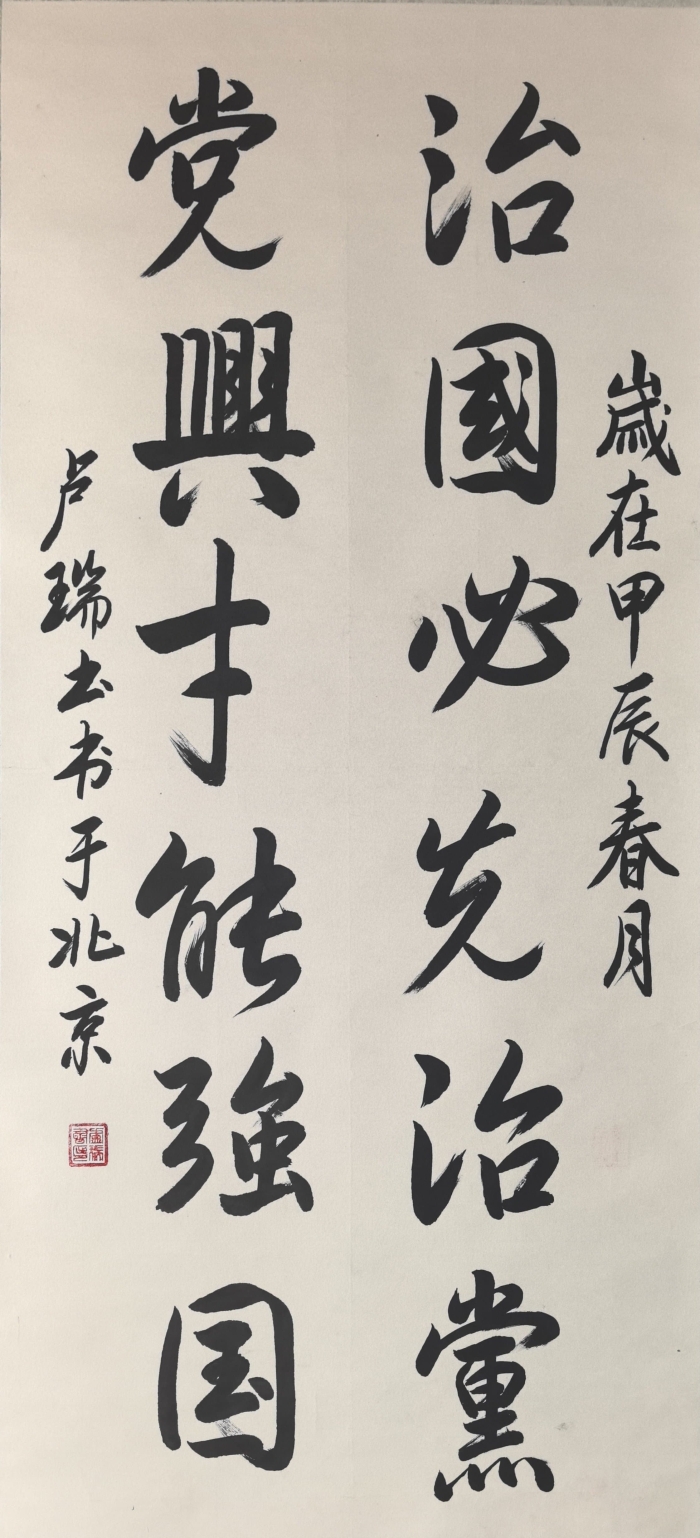 歲在甲辰春月
治國必先治黨
党興才能强国
卢瑞士书于北京